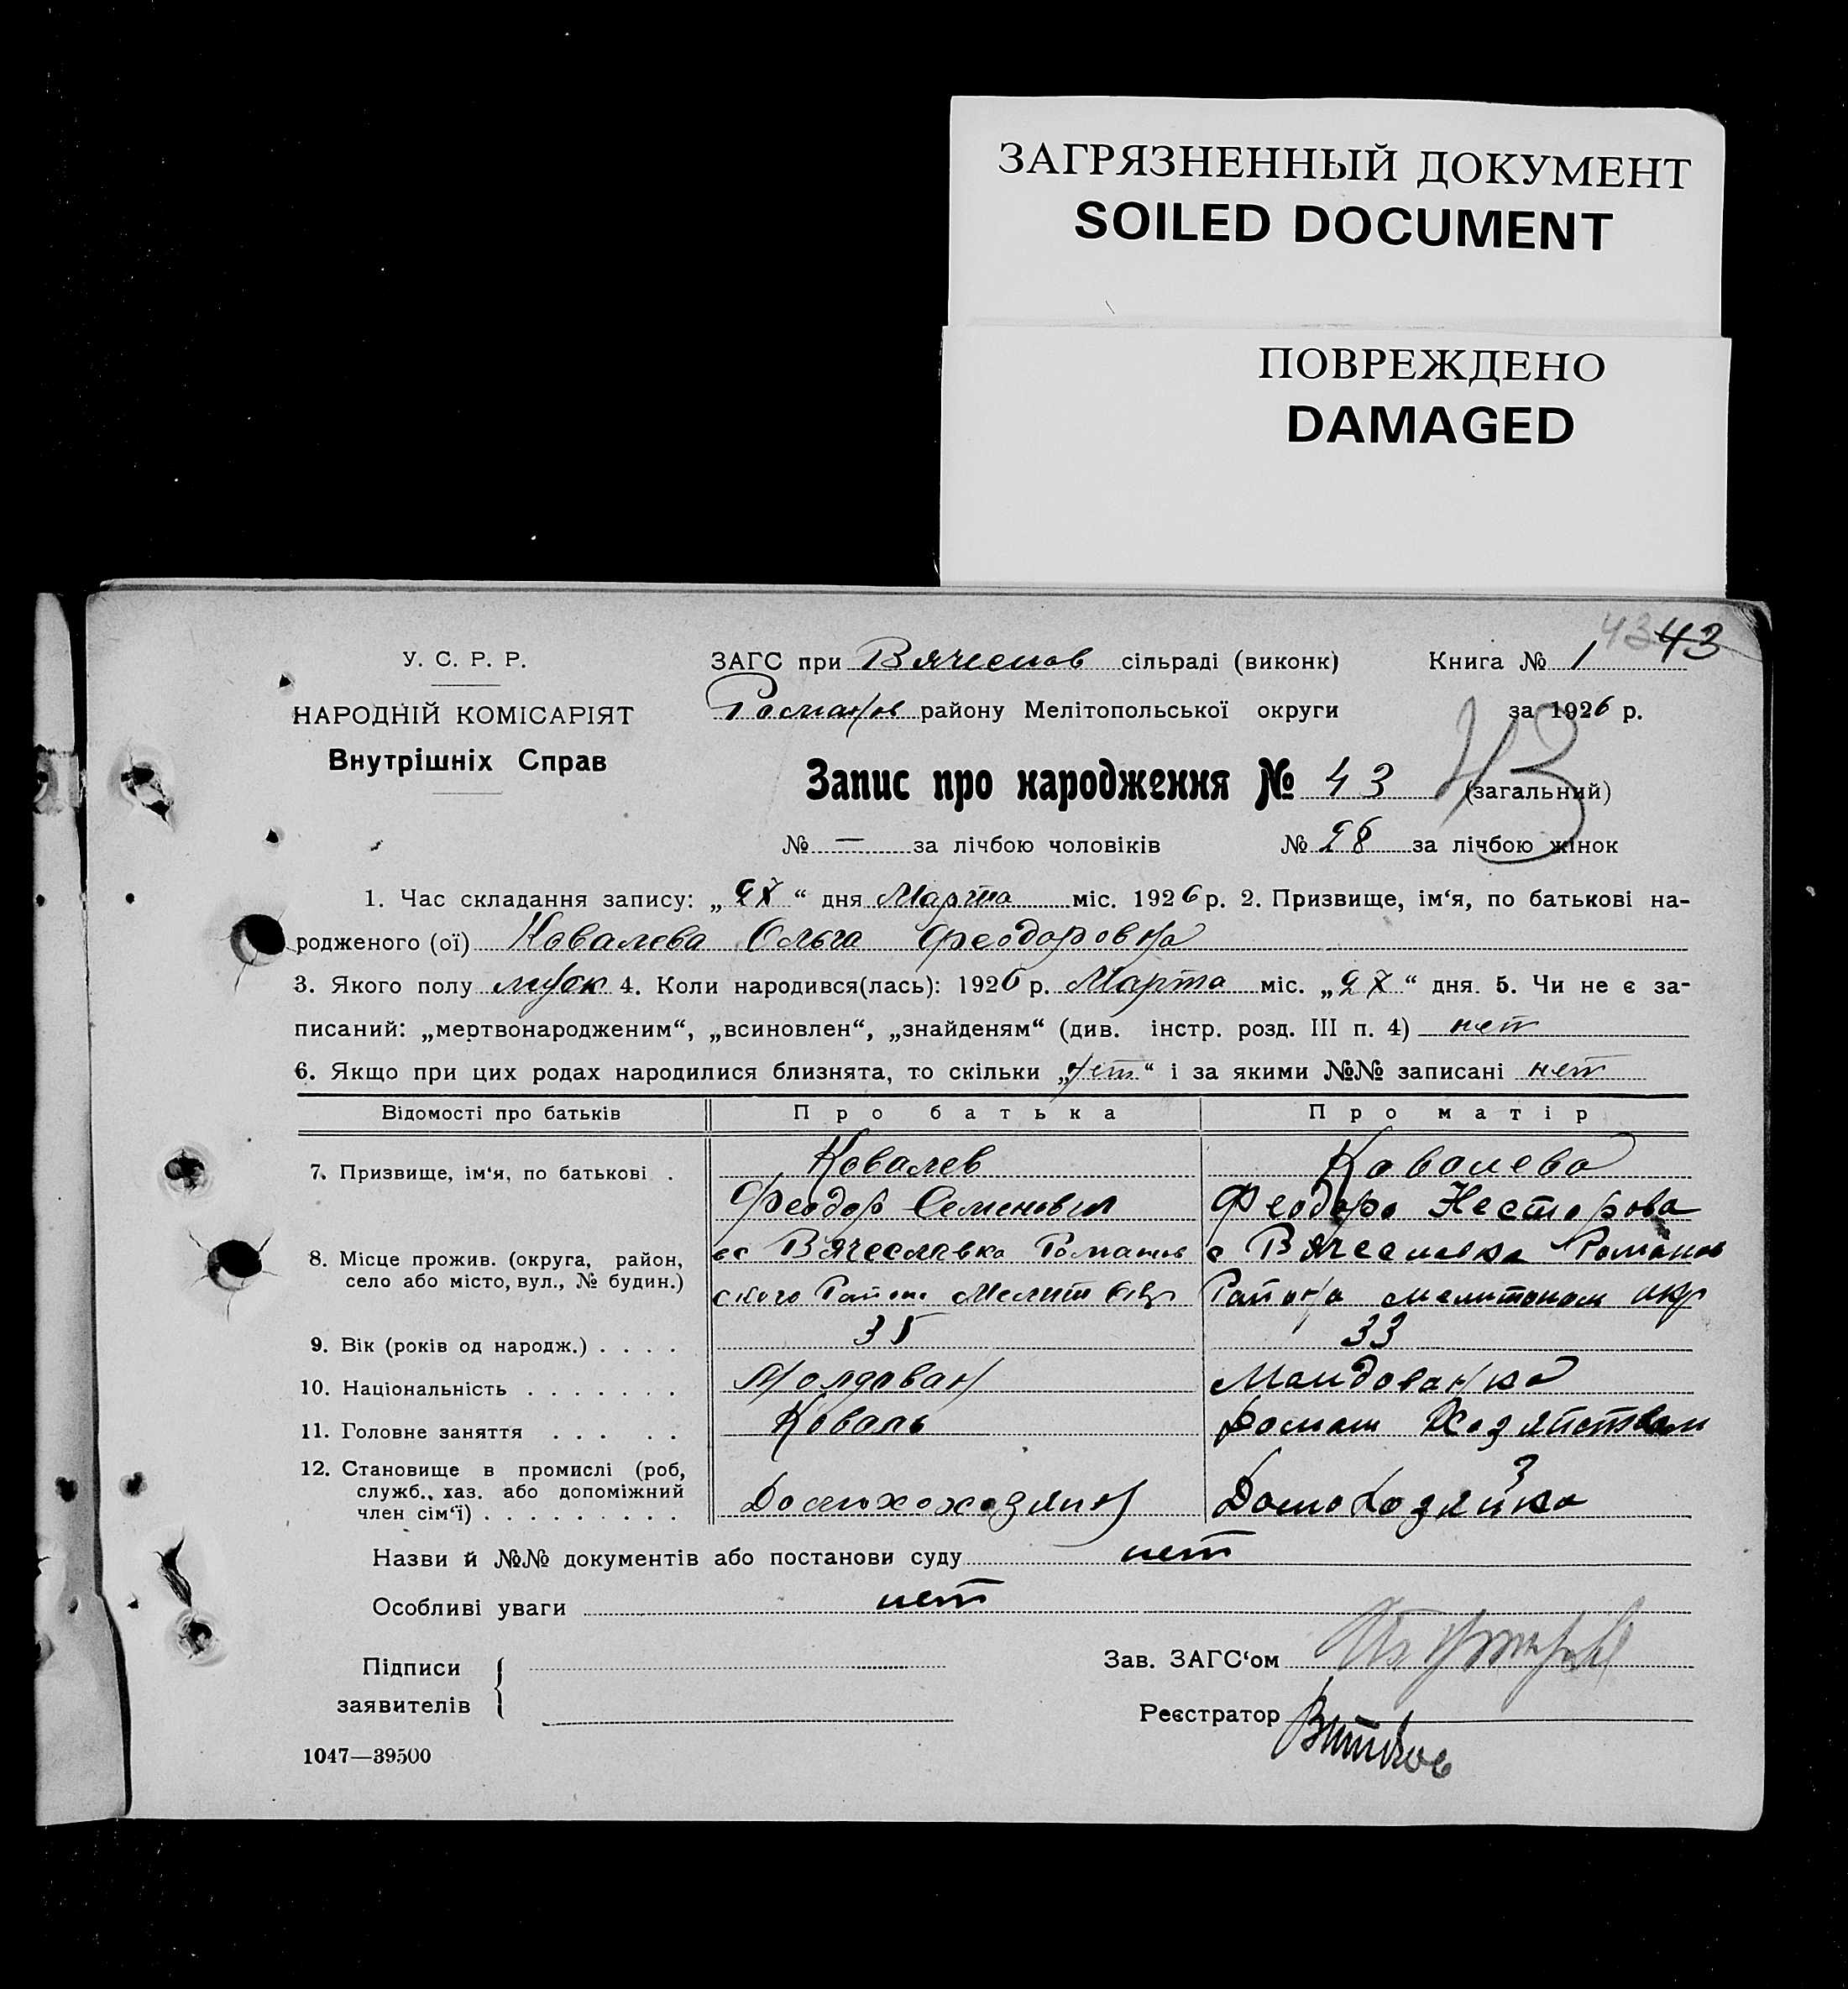 ЗАГРЯЗНЕННЫЙ ДОКУМЕНТ
SOILED DOCUMENT
ПОВРЕЖДЕНО
DAMAGED
43 43
У. С. Р. Р.
НАРОДНІЙ КОМІСАРІЯТ
Внутрішніх Справ
ЗАГС при Вячеслов сільраді (виконк) Книга № 1
Романов району Мелітопольської округи за 1926 р.
43
Запис про народження № 43 (загальний)
№ — за лічбою чоловіків № 28 за лічбою жінок
1. Час складання запису: „27“ дня Марта міс. 1926 р. 2. Призвище, ім‘я, по батькові на-
родженого (ої) Ковалева Ольга Феодоровна
3. Якого полу 4. Коли народився(лась): 1926 р. Марта міс. „27“ дня. 5. Чи не є за-
писаний: „мертвонародженим“, „всиновлен“, „знайденям“ (див. інстр. розд. III п. 4) нет
6. Якщо при цих родах народилися близнята, то скільки „нет“ і за якими №№ записані нет
Відомості про батьків Про батька Про матір
7. Призвище, ім‘я, по батькові . Ковалев Ковалева
Феодор Семенович Феодора Несторова
8. Місце прожив. (округа, район, село або місто, вул., № будин.) Вячеславка Романов с Вячеславка Романов
ского Района Мелит Окр Района мелитопол окр
9. Вік (років од народж.) . . . . 35 33
10. Національність . . . . . . . Молдован Молдованка
11. Головне заняття . . . . . Коваль Домаш Хозяйством
12. Становище в промислі (роб, служб., хаз. або допоміжний член сім‘ї) . . . . . . . . . Домохозяйка
Назви й №№ документів або постанови суду нет
Особливі уваги нет
Підписи заявителів
Зав. ЗАГС‘ом
Реєстратор
1047—39500